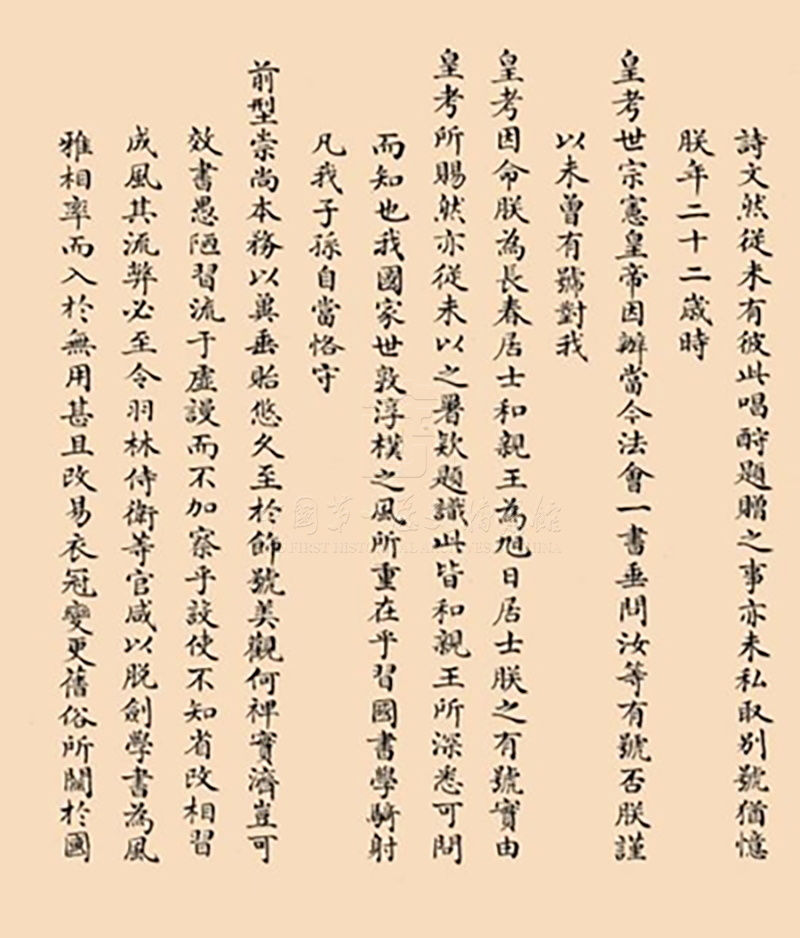 詩文然從未有彼此唱酧題贈之事亦未私取别號猶憶
朕年二十二歲時
皇考世宗憲皇帝因辦當今法會一書垂問汝等有號否朕謹
以未曾有號對我
皇考因命朕為長春居士和親王為旭日居士朕之有號實由
皇考所賜然亦從未以之署欵題識此皆和親王所深悉可問
而知也我國家世敦淳樸之風所重在乎習國書學騎射
凡我子孫自當恪守
前型崇尚本務以兾垂貽悠久至於飾號美觀何裨實濟豈可
效書愚陋習流于虛謾而不加察乎設使不知省改相習
成風其流弊必至令羽林侍衛等官咸以脱劍學書為風
雅相率而入於無用甚且改易衣冠變更舊俗所關於國
FIRST HISTORICAL ARCHIVES OF CHINA